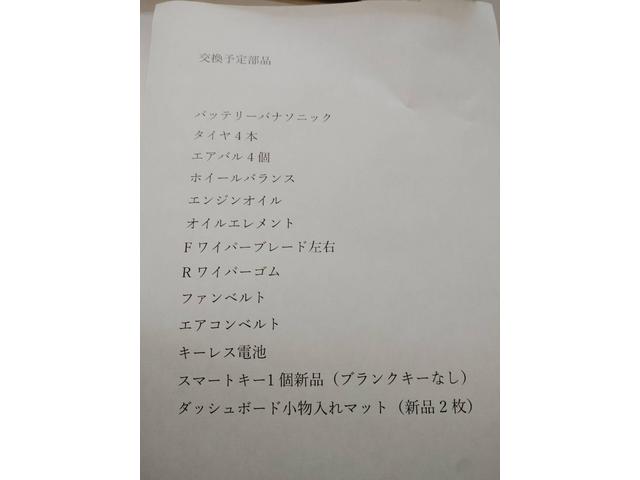 交換予定部品
バッテリーパナソニック
タイヤ4本
エアバル4個
ホイールバランス
エンジンオイル
オイルエレメント
Fワイパーブレード左右
Rワイパーゴム
ファンベルト
エアコンベルト
キーレス電池
スマートキー1個新品（ブランクキーなし）
ダッシュボード小物入れマット（新品2枚）